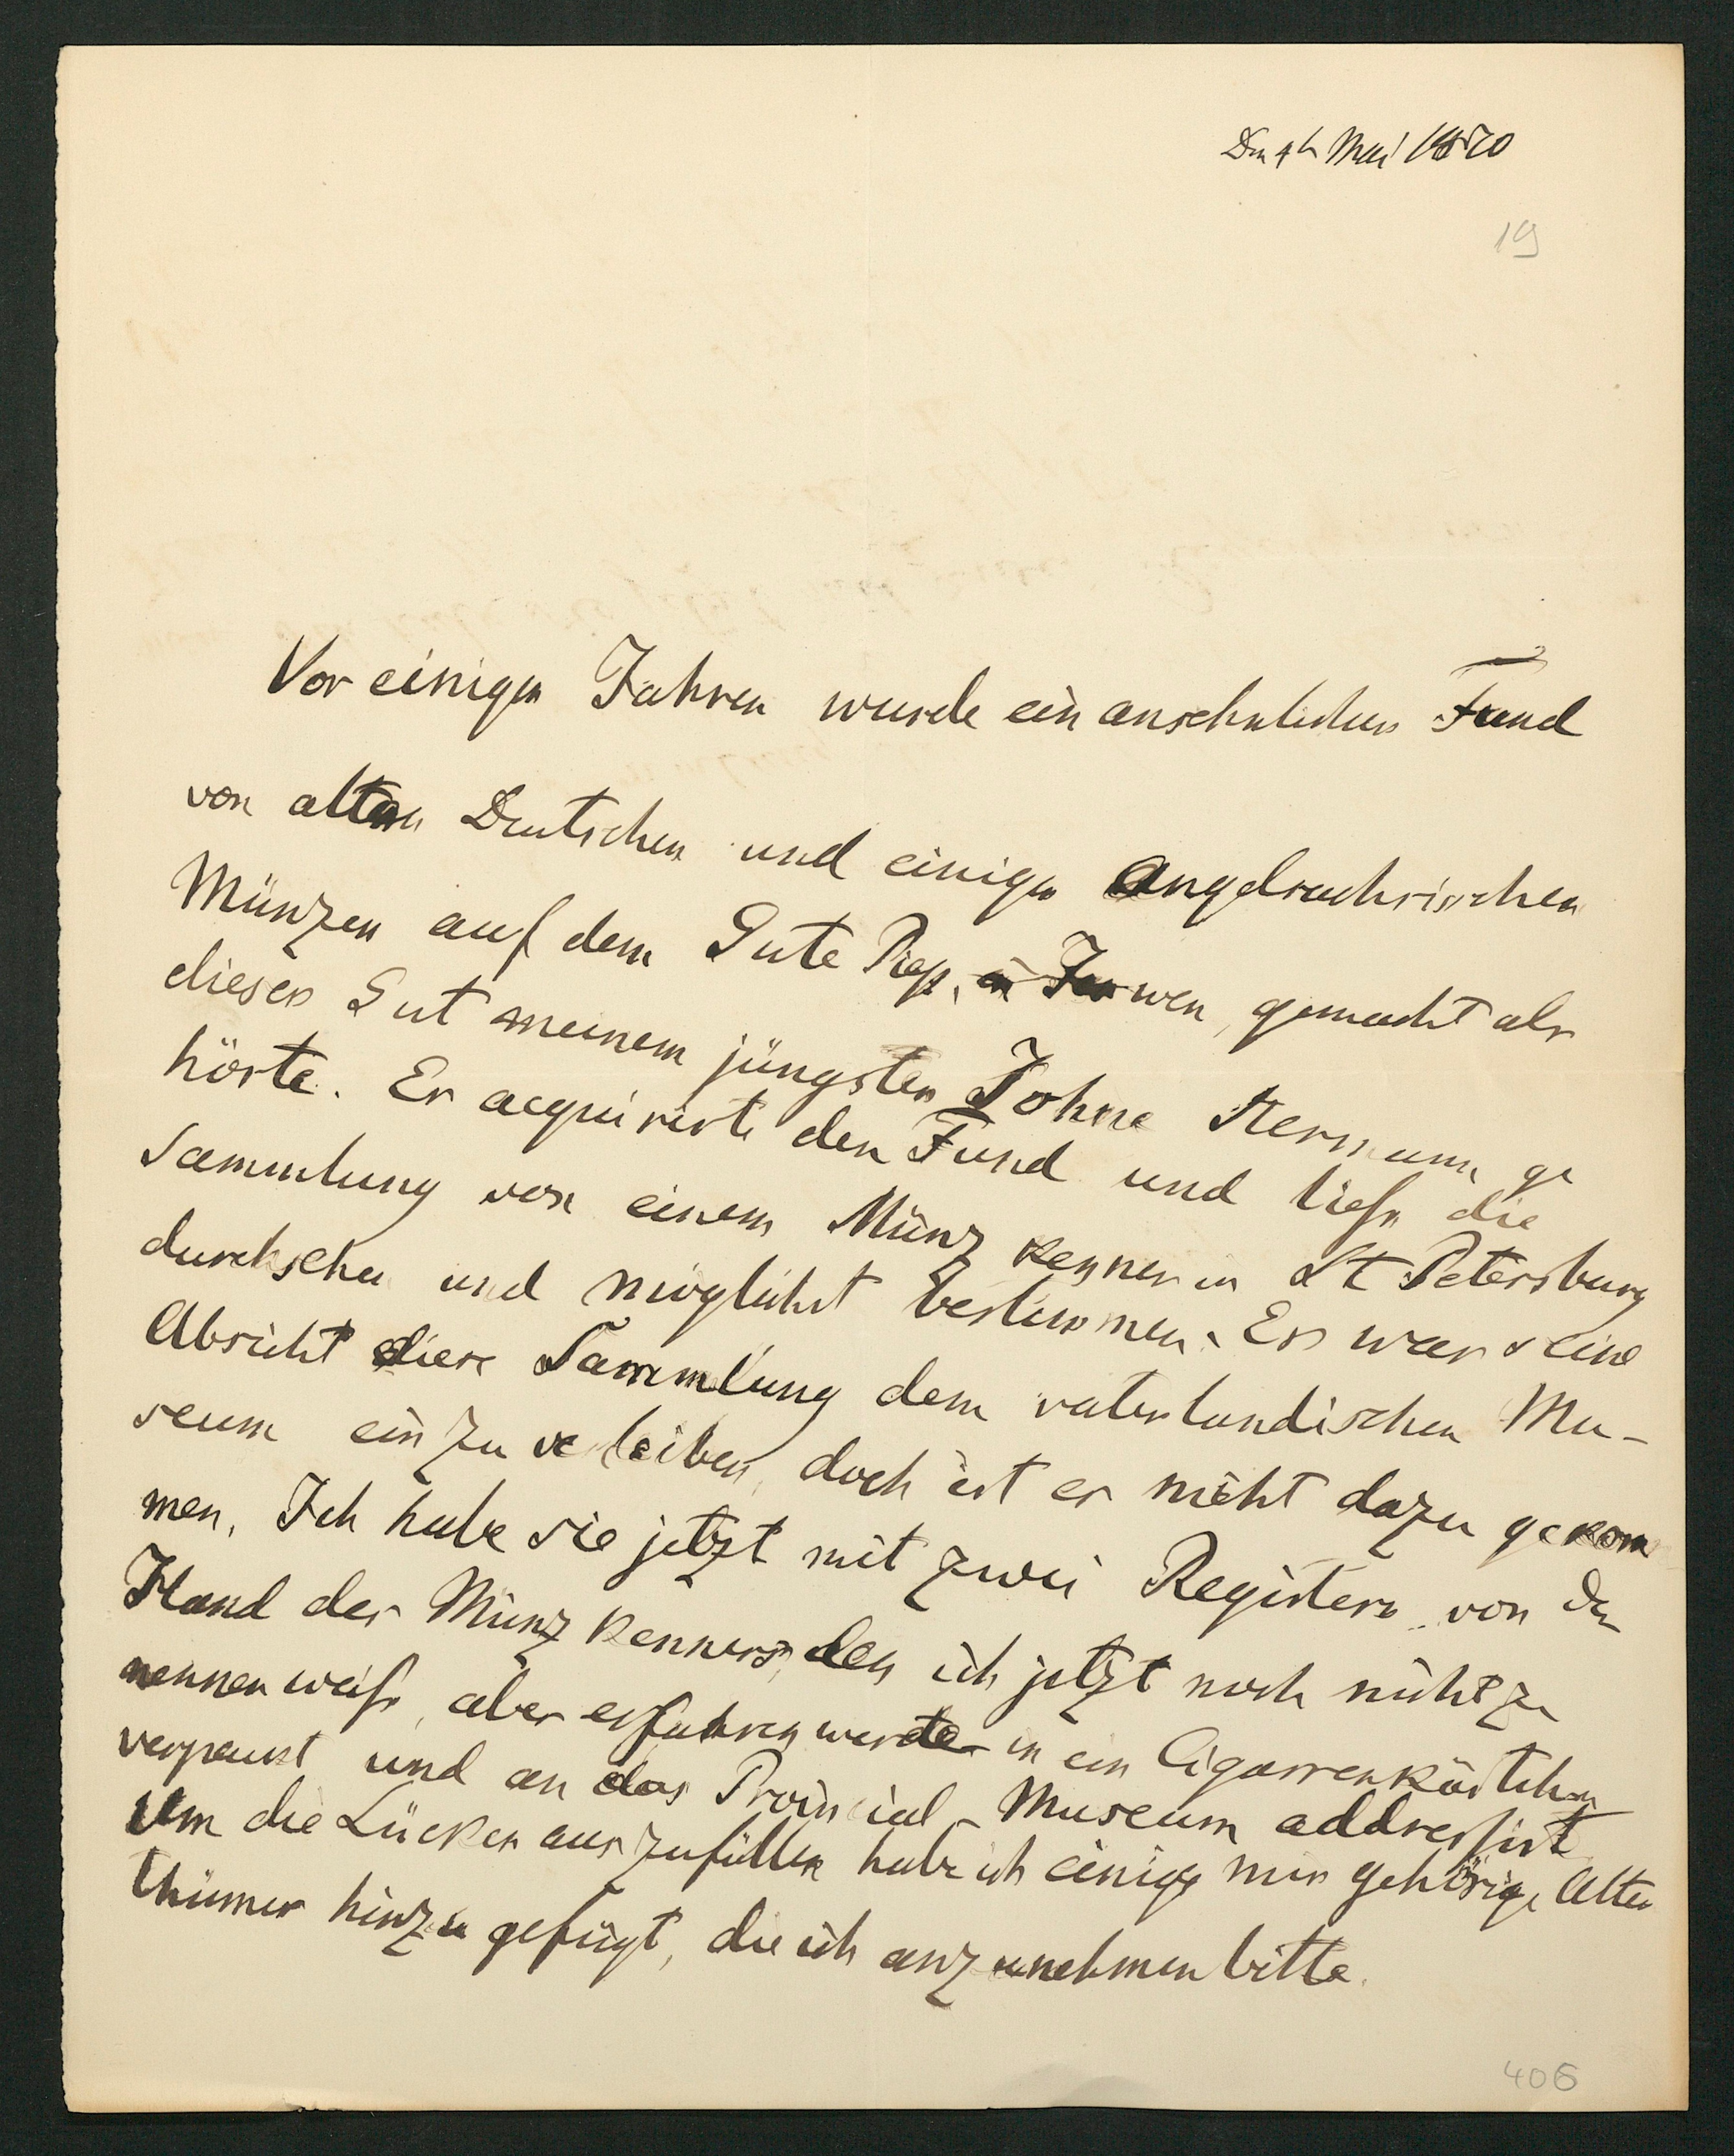 Den 4t Mai 1870
19
Vor einigen Jahren wurde ein ansehnlicher Fund
von alten Deutschen und einigen Angelsachsischen
Münzen auf dem Gute Piep, in Jerwen, gemacht als
dieses Gut meinem jüngsten Sohne Hermann ge
hörte. Er acquirirte den Fund und liess die
Sammlung von einem Münz kenner in St Petersburg
durchsehen und möglichst bestimmen. Es war seine
Absicht diese Sammlung dem vaterlandischen Mu-
seum einzuverleiben, doch ist er nicht dazu gekom
men. Ich habe sie jetzt mit zwei Registern von der
Hand des Münz kenners, den ich jetzt noch nicht zu
nennen weiss, aber erfahren werde in ein Cigarrenkästchen
verpackt und an das Provincial-Museum addressirt
Um die Lücken auszufüllen habe ich einige mir gehörige Alter
thümer hinzu gefügt, die ich anzunehmen bitte.
406